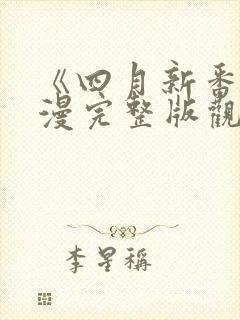 《四月新番
漫完整版觀
李星稱